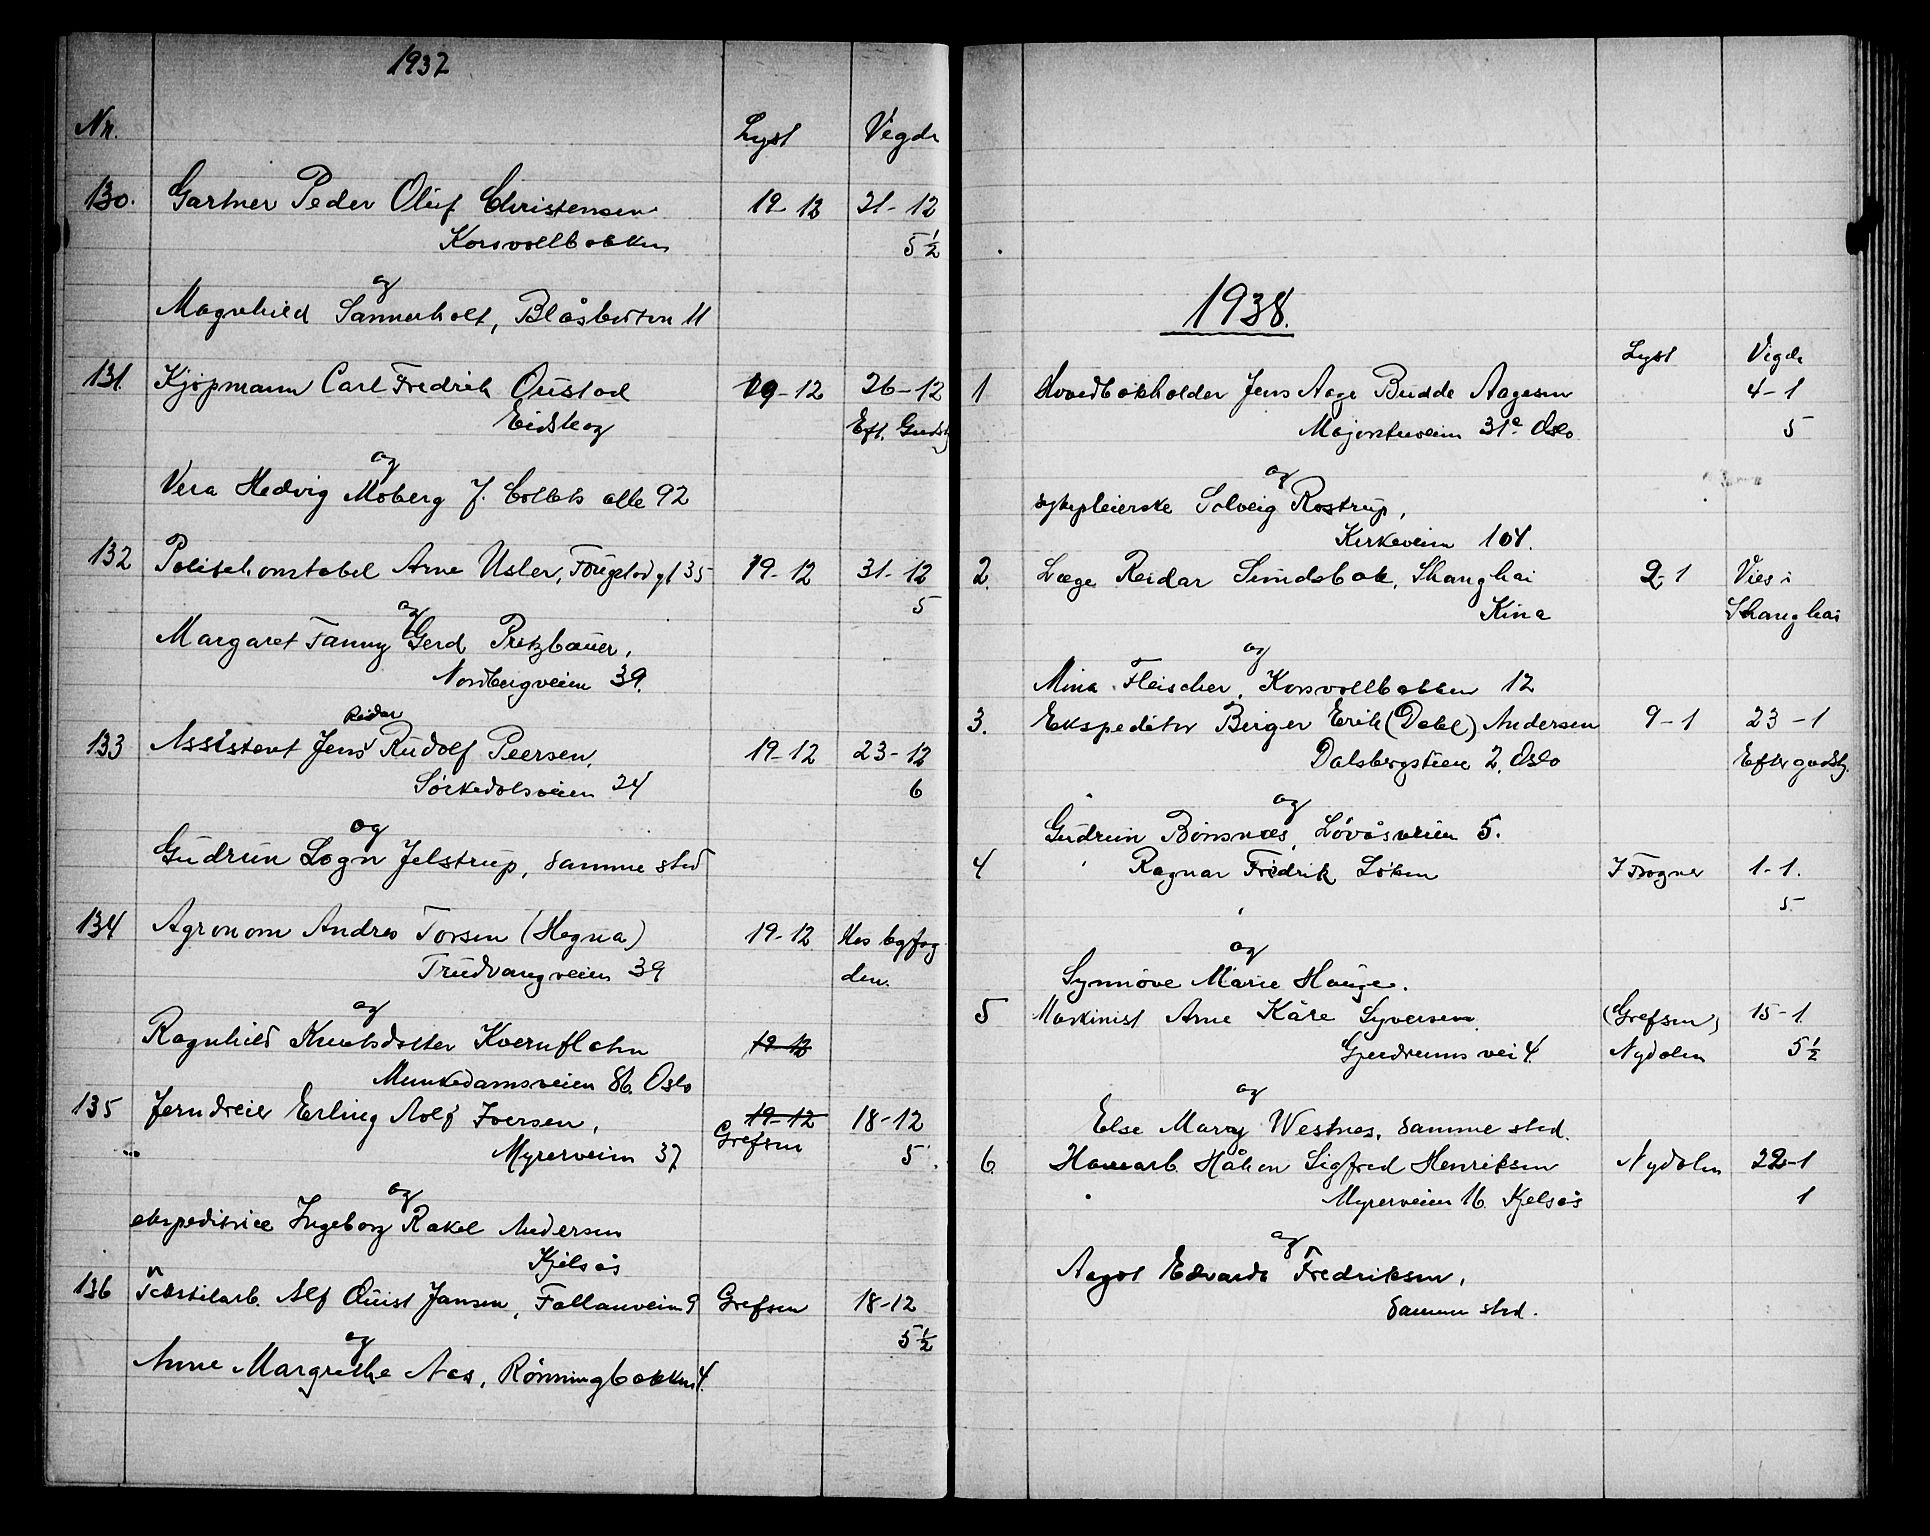 1937
Nr. Lyst Vigde
130. Gartner Peder Oluf Christensen 19-12 21-12
Korsvollbakken 5½
og
Magnhild Sannerholt, Blåsbortvn 11
131. Kjøpmann Carl Fredrik Oustad 19-12 26-12
Eidskog Eft. Gudstj
og
Vera Hedvig Moberg J. Colletts alle 92
132 Politikonstabel Arne Usler, Tåsen 35 19-12 31-12
og 5
Margaret Fanny Gerd Pritzbauer,
Nordbergveien 39.
Reidar
133 Assistent Jens Rudolf Peersen, 19-12 23-12
Sörkedalsveien 24 6
og
Gudrun Logn Jelstrup, samme sted
134 Agronom Andres Torsen (Hegna) 19-12 Hos byfog
Trudvangveien 39 den.
og
Ragnhild Knutsdatter Kvernflaten 19-12
Munkedamsveien 86. Oslo
135 Jerndreier Erling Rolf Iversen, 19-12 18-12
Grefsen
Myrerveien 37 5
og
ekspeditrice Ingeborg Rakel Andersen
Kjelsås
136 Tekstilarb. Alf Quist Jansen, Fallanveien 9 Grefsen 18-12
og 5½
Anne Margrethe Aas, Rönningbakken 4.
1938.
Lyst Vigde
1 Hovedbokholder Jens Aage Budde Aagesen 4-1
Majorstuveien 31e Oslo 5
og
sykepleierske Solveig Rostrup,
Kirkeveien 104.
2. Læge Reidar Sundsbak, Shanghai 2-1 Vies i
Kina Shanghai
og
Mina Fleischer, Korsvollbakken 12
3. Ekspeditør Birger Erik (Dahl) Andersen 9-1 23-1
Dalsbergstien 2. Oslo Efter gudstj.
og
Gudrun Bönsnæs, Lövåsveien 5.
4 Ragnar Fredrik Löken I Frogner 1-1.
5
og
Synnöve Marie Hauge.
5 Maskinist Arne Kåre Syversen (Grefsen) 15-1
Gjerdrums vei 4. Nydalen 5½
og
Else Mary Westnes, samme sted.
6. Havearb. Håkon Sigfred Henriksen Nydalen 22-1
Myrerveien 16. Kjelsås 1
og
Aagot Edvarda Fredriksen,
samme sted.